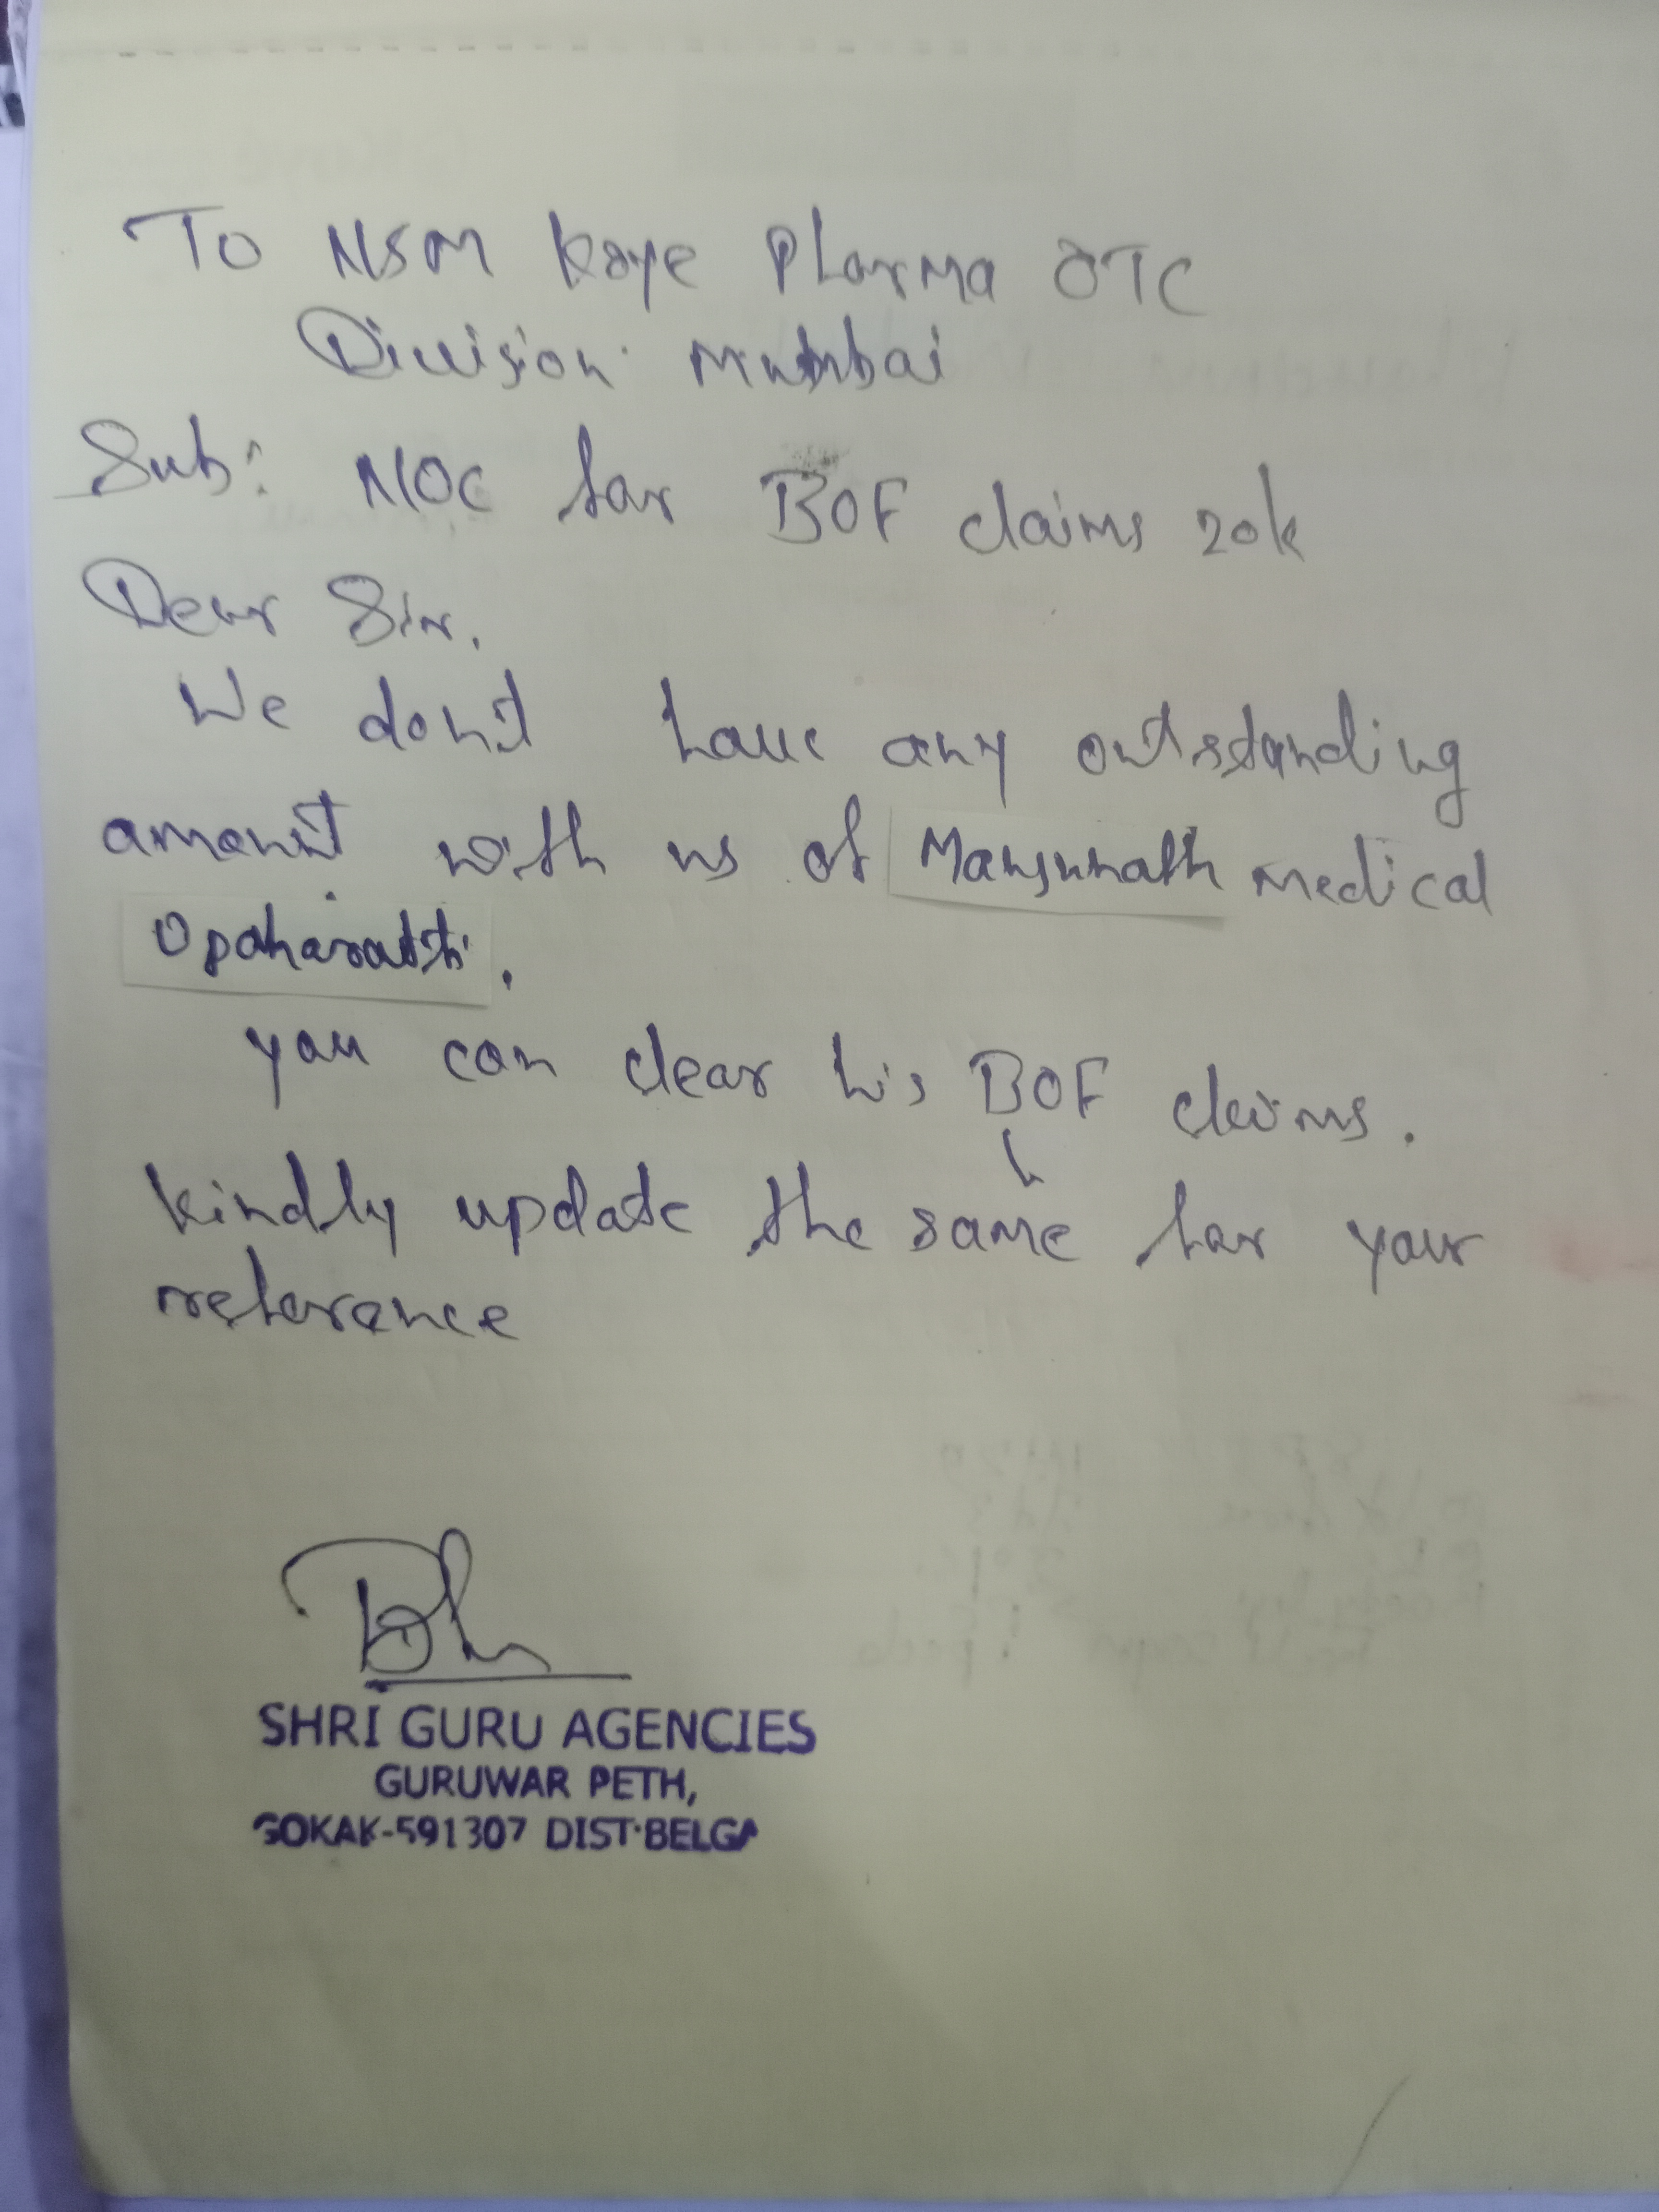 To NSM Kaye Pharma OTC
Division Mumbai
Sub: NOC for BOF claims 20k
Dear Sir,
We don't have any outstanding
amount with us of Manjunath medical
.
you can clear his BOF claims.
kindly update the same for your
referance
SHRI GURU AGENCIES
GURUWAR PETH,
GOKAK-591307 DIST·BELGA